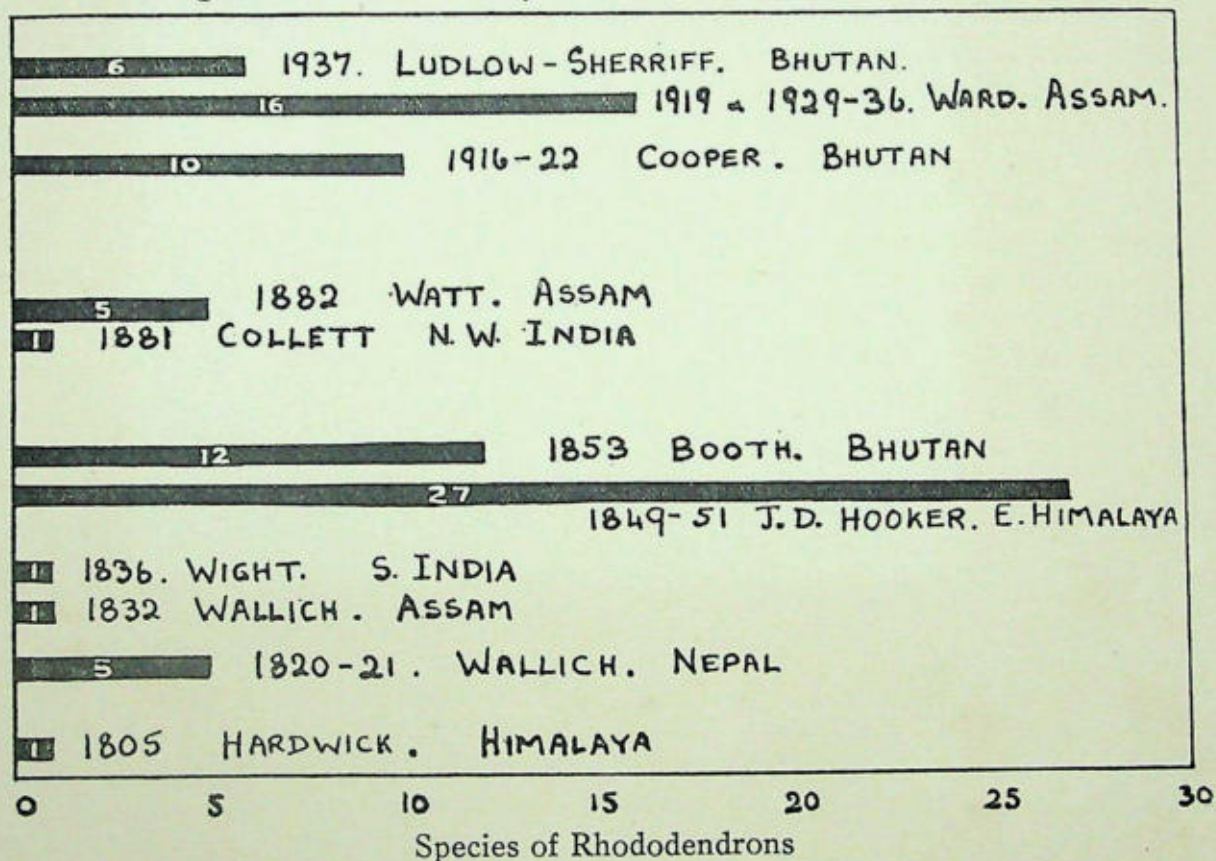 6 1937. LUDLOW-SHERRIFF. BHUTAN.
16 1919 & 1929-36. WARD. ASSAM.
10 1916-22 COOPER. BHUTAN
5 1882 WATT. ASSAM
1 1881 COLLETT N.W. INDIA
12 1853 BOOTH. BHUTAN
27
1849-51 J.D. HOOKER. E. HIMALAYA
1 1836. WIGHT. S. INDIA
1 1832 WALLICH. ASSAM
5 1820-21. WALLICH. NEPAL
1 1805 HARDWICK. HIMALAYA
0 5 10 15 20 25 30
Species of Rhododendrons